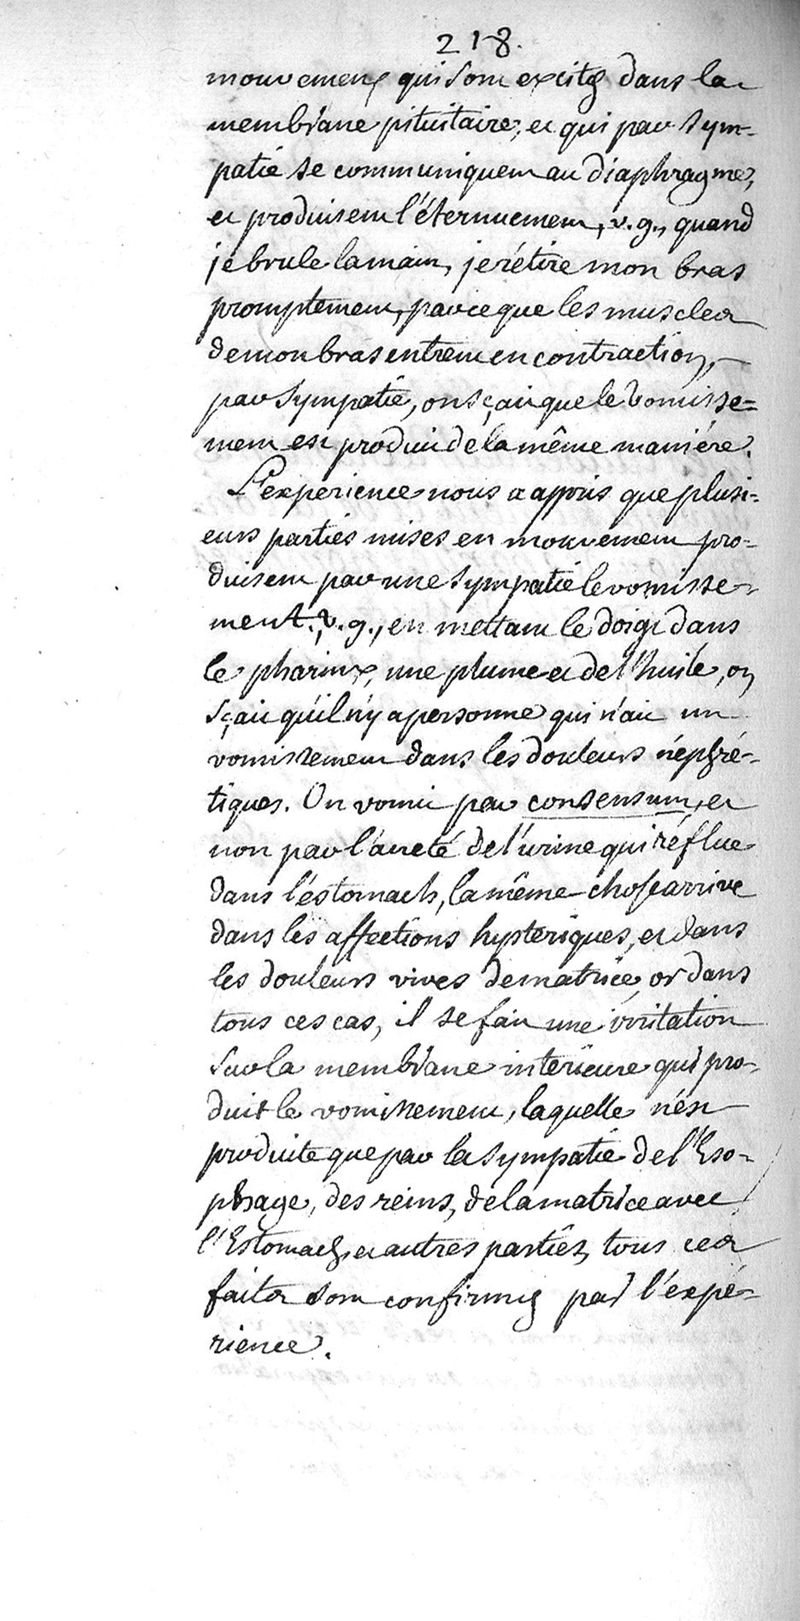 218.
mouvemens qui sont excités dans la
membrane pituitaire, et qui par sym-
patie se communiquent au diaphragme,
et produisent l'éternuement, v.g., quand
je brule la main, je rétire mon bras
promptement, parceque les muscles
de mon bras entrent en contraction,
par sympatie, on sçait que le vomisse=
ment est produit de la même maniére.
L'experience nous a appris que plusi-
eurs parties mises en mouvement pro-
duisent par une sympatie le vomisse-
ment., v.g., en mettant le doigt dans
le pharinx, une plume et de l'huile, on
sçait qu'il n'y a personne qui n'ait un
vomissement dans les douleurs néphré-
tiques. On vomit par consensum, et
non par l'acreté de l'urine qui réflue
dans l'éstomach, la même chose arrive
dans les affections hysteriques, et dans
les douleurs vives de matrice, or dans
tous ces cas, il se fait une irritation
sur la membrane interieure qui pro-
duit le vomissement, laquelle n'est
produite que par la sympatie de l'Eso-
phage, des reins, de la matrice avec
l'Estomach, et autres parties, tous ces
faits sont confirmés par l'expé-
rience.